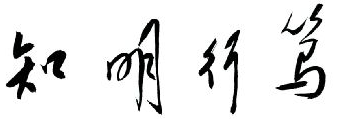 知明行笃